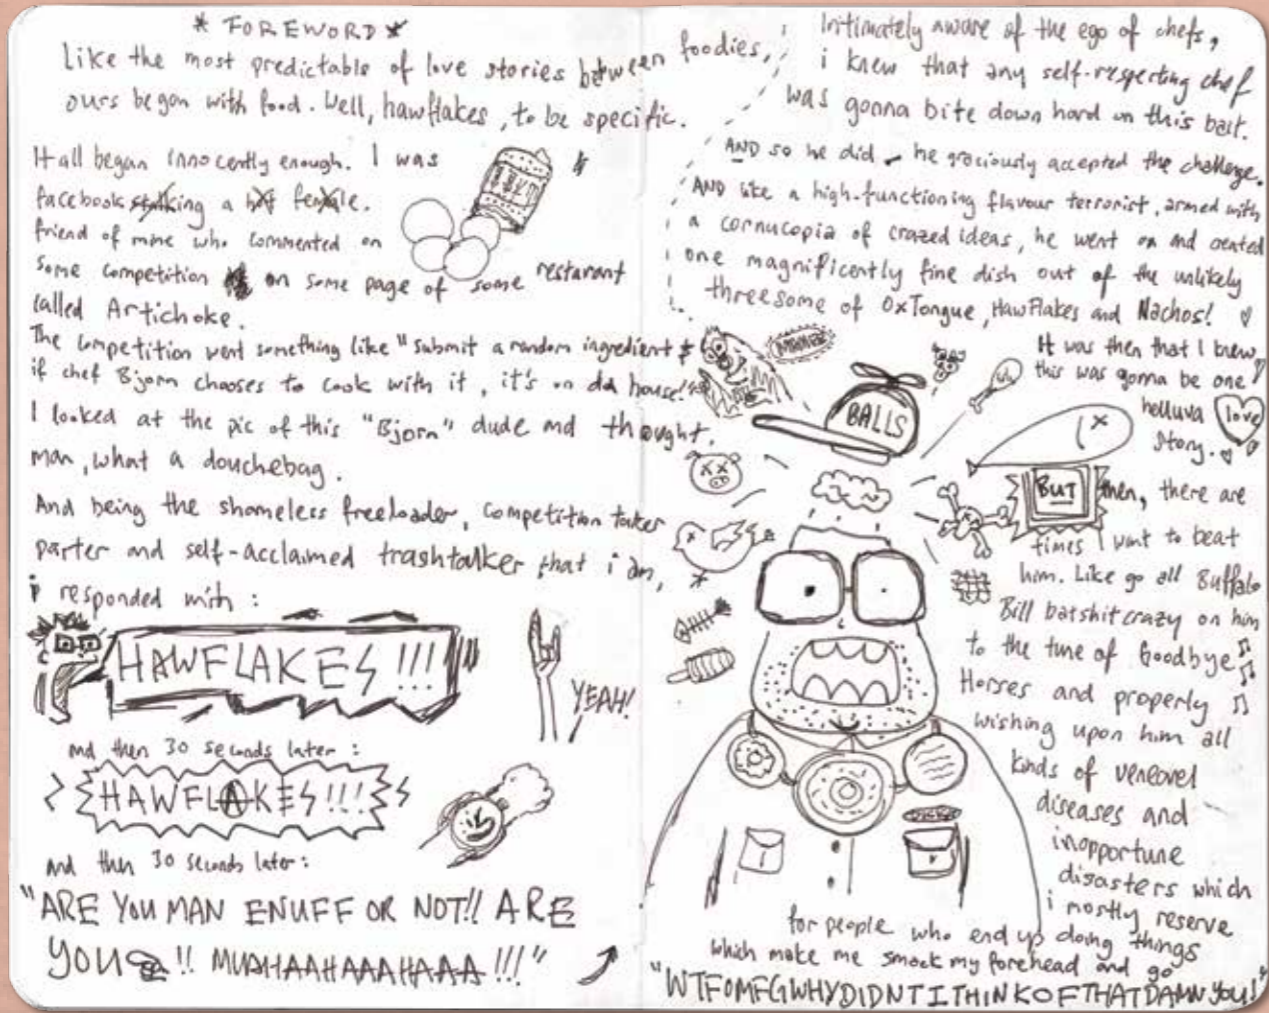 * FOREWORD *
Like the most predictable of love stories between foodies,
ours began with food. Well, hawflakes, to be specific.
It all began innocently enough. I was
facebook stalking a hot female.
friend of mine who commented on
some competition on some page of some restarant
called Artichoke.
The competition went something like "Submit a random ingredient &
if chef Bjorn chooses to cook with it, it's on da house!"
I looked at the pic of this "Bjorn" dude and thought.
man, what a douchebag.
And being the shameless freeloader, competition taker
parter and self-acclaimed trashtalker that i am,
i responded with:
HAWFLAKES!!!
YEAH!
and then 30 seconds later:
HAWFLAKES!!!
and then 30 seconds later:
"ARE YOU MAN ENUFF OR NOT!! ARE
YOU !! MUAHAAHAAAHAAA!!!"
Intimately aware of the ego of chefs,
i knew that any self-respecting chef
was gonna bite down hard on this bait.
AND so he did - he graciously accepted the challenge.
AND like a high-functioning flavour terrorist, armed with
a cornucopia of crazed ideas, he went on and created
one magnificently fine dish out of the unlikely
threesome of OxTongue, HawFlakes and Nachos!
It was then that I knew
this was gonna be one
helluva love
story.
BALLS
BUT then, there are
times I want to beat
him. Like go all Buffalo
Bill batshit crazy on him
to the tune of Goodbye
Horses and properly
wishing upon him all
kinds of venereel
diseases and
inopportune
disasters which
i mostly reserve
for people who end up doing things
which make me smack my forehead and go
"WTFOMFGWHYDIDNTITHINKOFTHATDAMNYOU!"